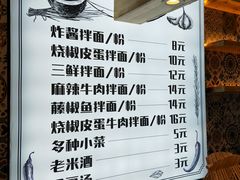 炸酱拌面/粉 8元
烧椒皮蛋拌面/粉 10元
三鲜拌面/粉 12元
麻辣牛肉拌面/粉 14元
藤椒鱼拌面/粉 14元
烧椒皮蛋牛肉拌面/粉 16元
多种小菜 5元
老米酒 3元
豆汤 3元